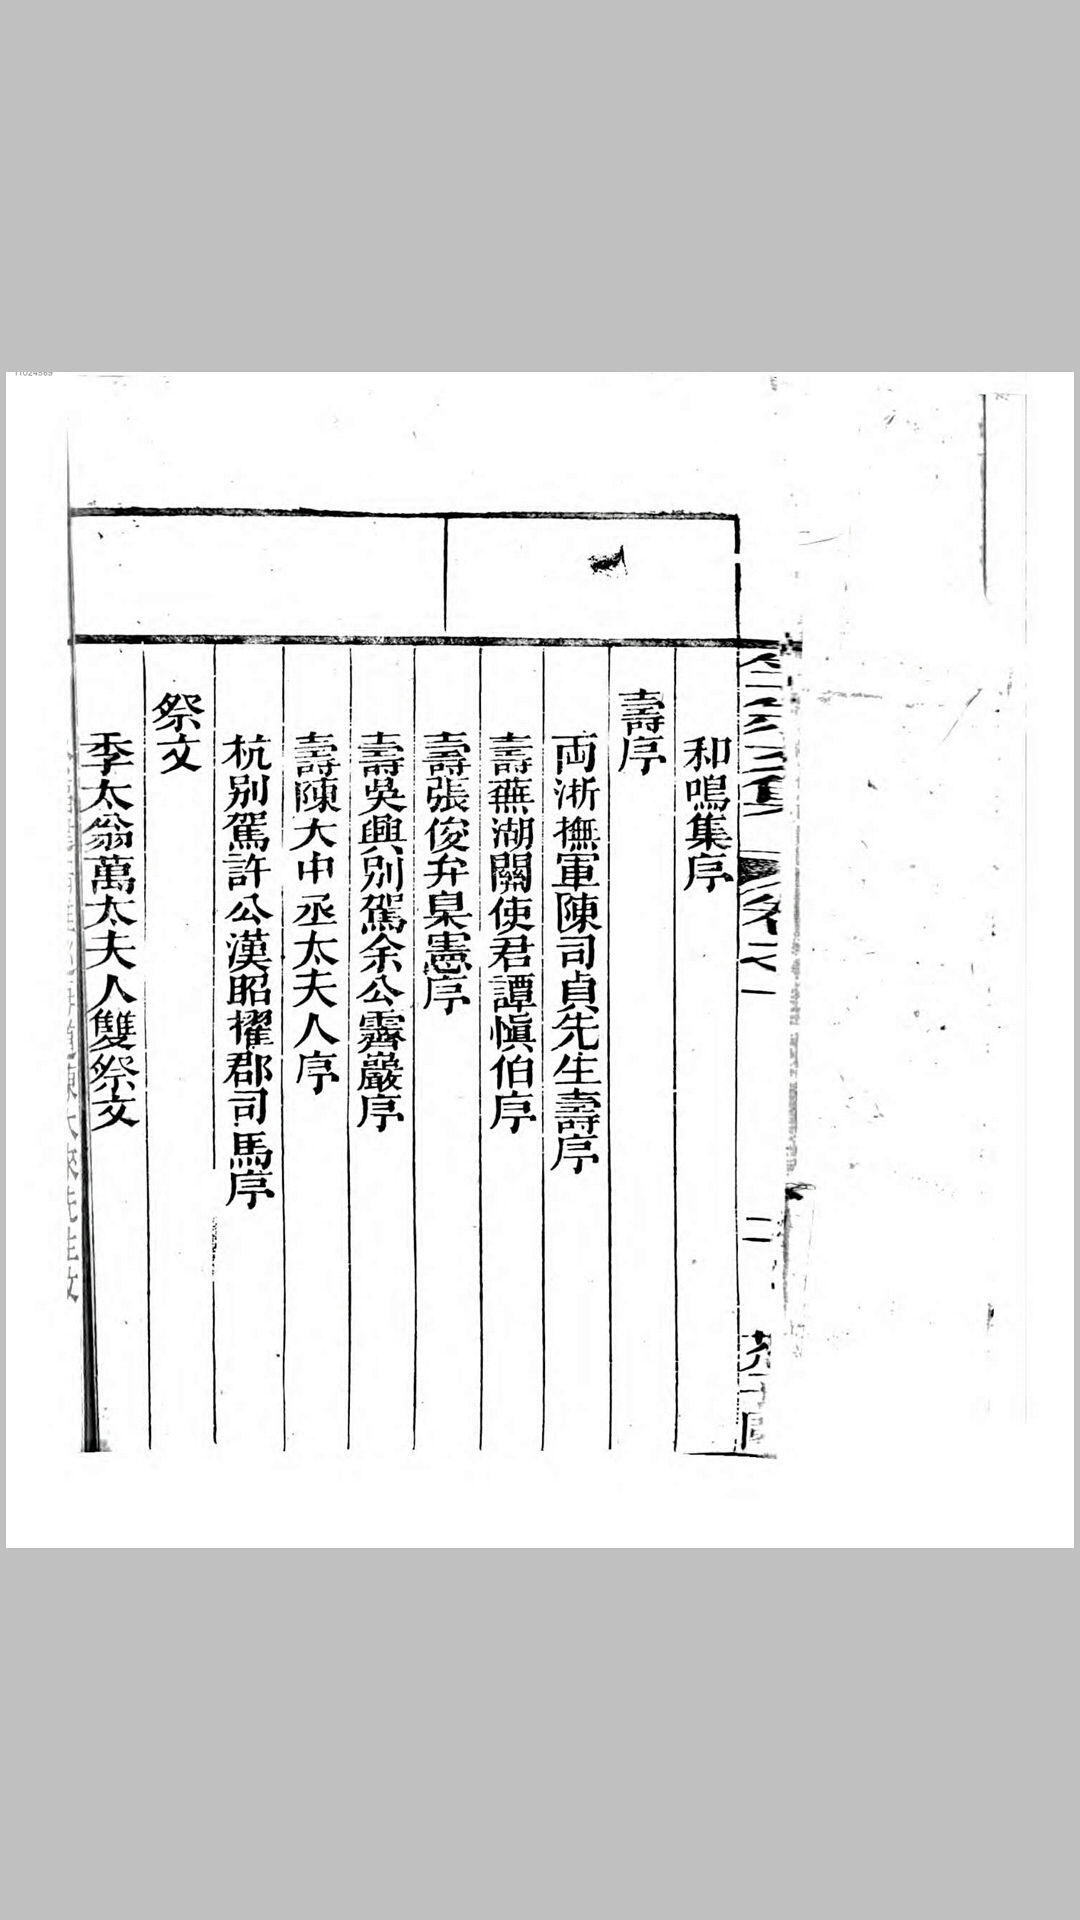 和鳴集序
壽序
両浙撫軍陳司貞先生壽序
壽蕪湖關使君譚愼伯序
壽張俊弁臬憲序
壽吳興別駕余公霽巖序
壽陳大中丞太夫人序
杭別駕許公漢昭擢郡司馬序
祭文
季太翁萬太夫人雙祭文
卷之一
二